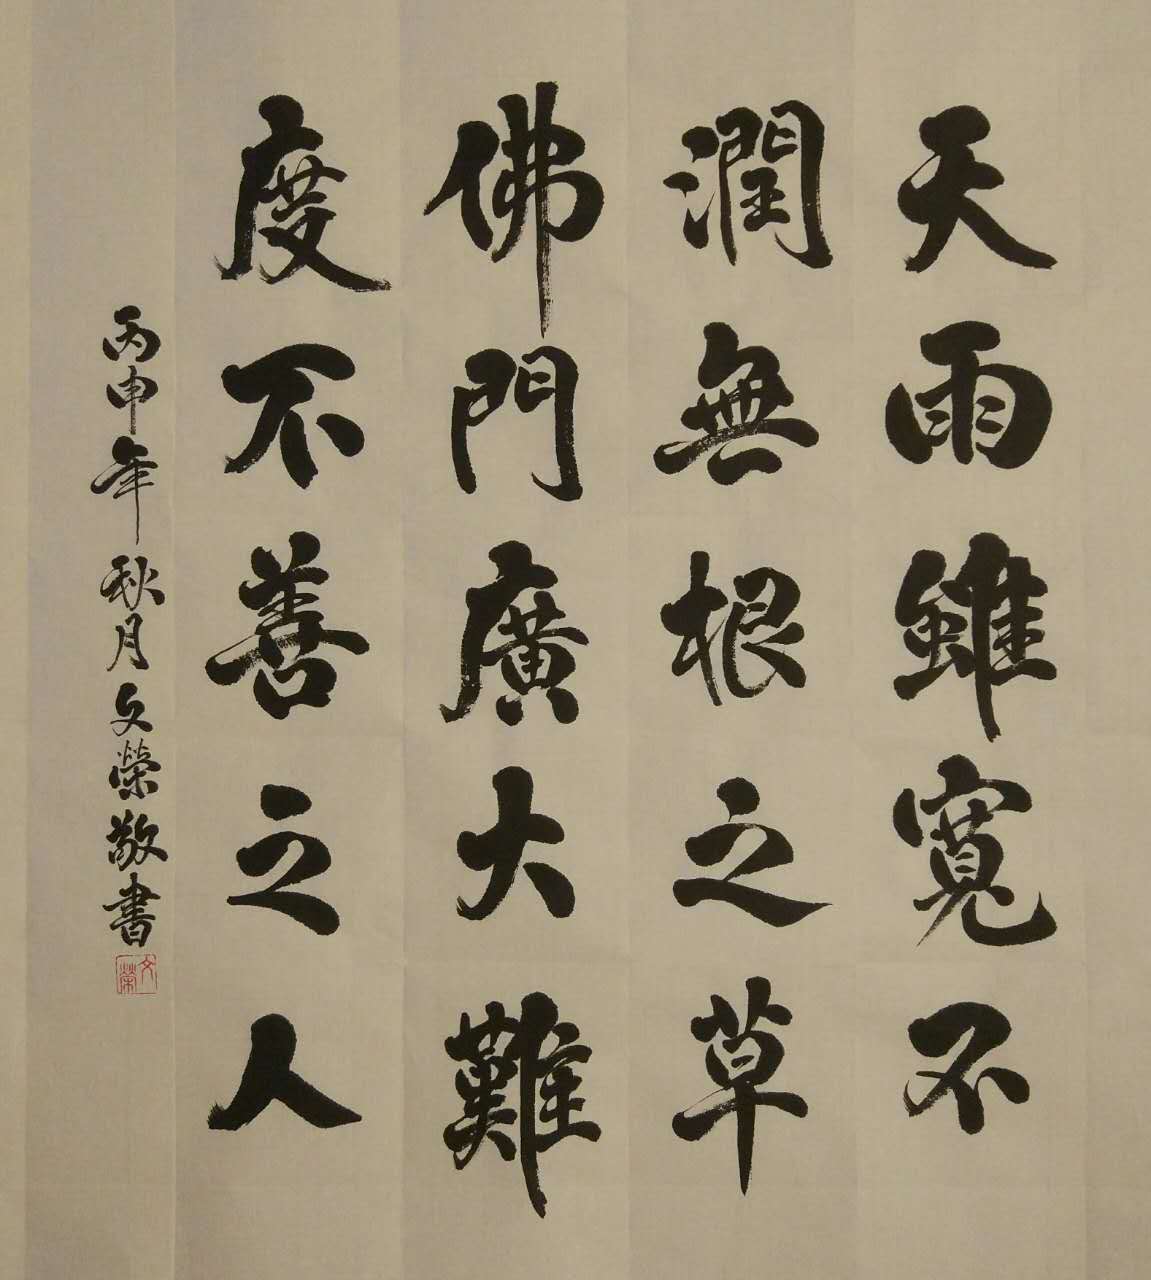 天雨雖寬不
潤無根之草
佛門廣大難
度不善之人
丙申年秋月文榮敬書
文榮